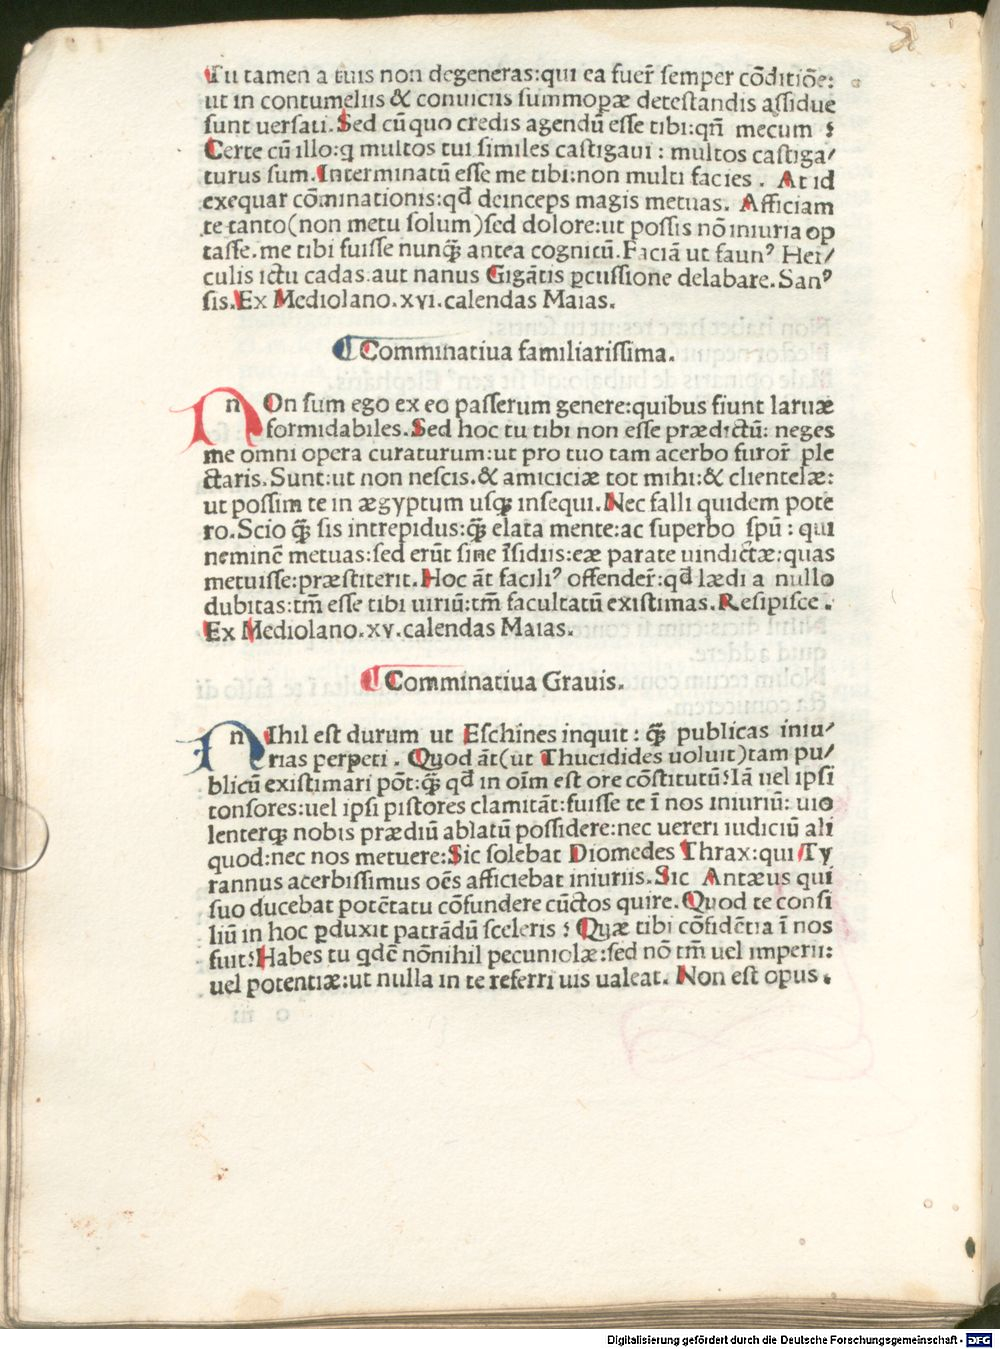 Tu tamen a tuis non degeneras:qui ea fuer̃ semper cōditiōe:
ut in contumeliis & conuiciis summopæ detestandis assidue
sunt uersati. Sed cū quo credis agendū esse tibi:qñ mecum ?
Certe cū illo:q multos tui similes castigaui : multos castiga/
turus sum. Interminatū esse me tibi:non multi facies . At id
exequar cōminationis:qd̄ deinceps magis metuas. Afficiam
te tanto(non metu solum)sed dolore:ut possis nō iniuria op
tasse.me tibi fuisse nunq̄ antea cognitū.Faciā ut faunꝰ Her/
culis ictu cadas.aut nanus Gigātis ꝑcussione delabare.Sanꝰ
sis.Ex Mediolano.xvi.calendas Maias.
Comminatiua familiarissima.
nOn sum ego ex eo passerum genere:quibus fiunt laruæ
formidabiles.Sed hoc tu tibi non esse prædictū: neges
me omni opera curaturum:ut pro tuo tam acerbo furor̃ ple
ctaris.Sunt:ut non nescis.& amiciciæ tot mihi:& clientelæ:
ut possim te in ægyptum usq; insequi.Nec falli quidem pote
ro.Scio q̄ sis intrepidus:q̄ elata mente:ac superbo spū : qui
neminē metuas:sed erūt sine īsidiis:eæ parate uindictæ:quas
metuisse:præstiterit.Hoc āt faciliꝰ offender̃:qd̄ lædi a nullo
dubitas:tm̄ esse tibi uiriū:tm̄ facultatū existimas.Resipisce .
Ex Mediolano.xv.calendas Maias.
Comminatiua Grauis.
nIhil est durum ut Eschines inquit : q̄ publicas iniu/
rias perpeti . Quod āt(ut Thucidides uoluit)tam pu/
blicū existimari pōt:q̄ qd̄ in oīm est ore cōstitutū?Iā uel ipsi
tonsores:uel ipsi pistores clamitāt:fuisse te ī nos iniuriū: uio
lenterq; nobis prædiū ablatū possidere:nec uereri iudiciū ali
quod:nec nos metuere:Sic solebat Diomedes Thrax:qui Ty
rannus acerbissimus oēs afficiebat iniuriis.Sic Antæus qui
suo ducebat potētatu cōfundere cūctos quire.Quod te consi
liū in hoc ꝑduxit patrādū sceleris ? Quæ tibi cōfidētia ī nos
fuit?Habes tu qdē nōnihil pecuniolæ:sed nō tm̄ uel imperii:
uel potentiæ:ut nulla in te referri uis ualeat. Non est opus .
Digitalisierung gefördert durch die Deutsche Forschungsgemeinschaft - DFG